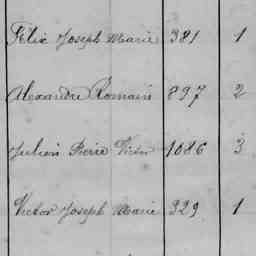 Félix Joseph Marie 381 1
Alexandre Romain 897 2
Julien Pierre Victor 1086 3
Victor Joseph Marie 329 1